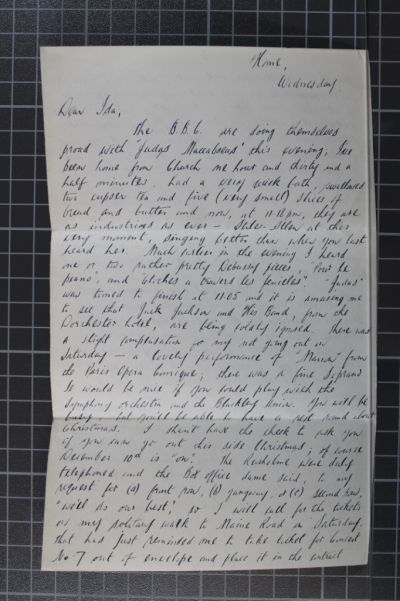 Home,
Wednesday.
Dear Ida,
The B.B.C. are doing themselves
proud with 'Judas Maccabaeus' this evening; I've
been home from Church one hour and thirty and a
half minutes, had a very quick bath, swallowed
two cups of tea and five (very small) slices of
bread and butter and now, at 11.18 pm, they are
as industrious as ever — Stiles Allen at this
very moment, singing better than when you last
heard her. Much earlier in the evening I heard
one or two rather pretty Debussy pieces, 'Pour le
piano', and 'Cloches a travers les feuilles'. 'Judas'
was timed to finish at 11.05 and it is amusing me
to see that Jack Jackson and His Band, from the
Dorchester Hotel, are being coldly ignored. There was
a slight compensation for my not going out on
Saturday — a lovely performance of 'Manon' from
the Paris Opera Comique; there was a fine soprano
It would be nice if you could play with the
Symphony orchestra and the Blackley Union. You will be
busy — but you'll be able to have a rest round about
Christmas. I shan't have the cheek to ask you
if you can go out this side Christmas; of course
December 10th is "on". The Rusholme were duly
telephoned and the Box office dame said, to my
request for (a) front row, (b) gangway, or (c) second row,
'we'll do our best', so I will call for the tickets
on my solitary walk to Maine Road on Saturday.
that has just reminded me to take ticket for Concert
No 7 out of envelope and place it in the